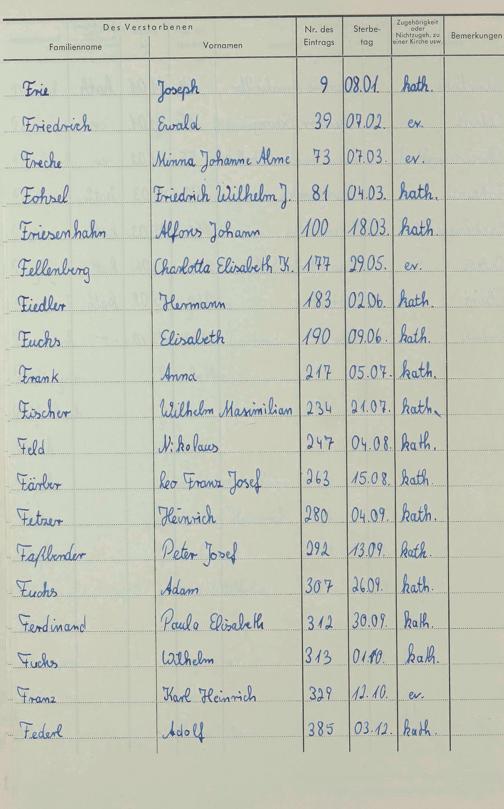 Des Verstorbenen
Familienname Vornamen Nr. des Eintrags Sterbe-tag Zugehörigkeit oder Nichtzugeh. zu einer Kirche usw. Bemerkungen
Frie Joseph 9 08.01. kath.
Friedrich Ewald 39 07.02. ev.
Freche Minna Johanne Alme 73 07.03. ev.
Fohsel Friedrich Wilhelm J. 81 04.03. kath.
Friesenhahn Alfons Johann 100 18.03. kath.
Fellenberg Charlotta Elisabeth K. 177 29.05. ev.
Fiedler Hermann 183 02.06. kath.
Fuchs Elisabeth 190 09.06. kath.
Frank Anna 217 05.07. kath.
Fischer Wilhelm Maximilian 234 21.07. kath.
Feld Nikolaus 247 04.08. kath.
Färber Leo Franz Josef 263 15.08. kath.
Fetzer Heinrich 280 04.09. kath.
Faßbender Peter Josef 292 13.09. kath.
Fuchs Adam 307 26.09. kath.
Ferdinand Paula Elisabeth 312 30.09. kath.
Fuchs Wilhelm 313 01.10. kath.
Franz Karl Heinrich 329 12.10. ev.
Federl Adolf 385 03.12. kath.